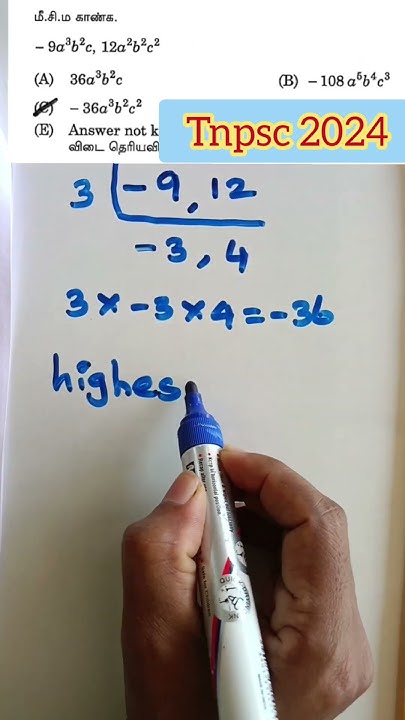 மீ.சி.ம காண்க.
− 9a³b²c, 12a²b²c²
(A) 36a³b²c (B) − 108 a⁵b⁴c³
(C) − 36a³b²c²
(E) Answer not k
விடை தெரியவி
Tnpsc 2024
3 | -9, 12
-3, 4
3 × -3 × 4 = -36
highes